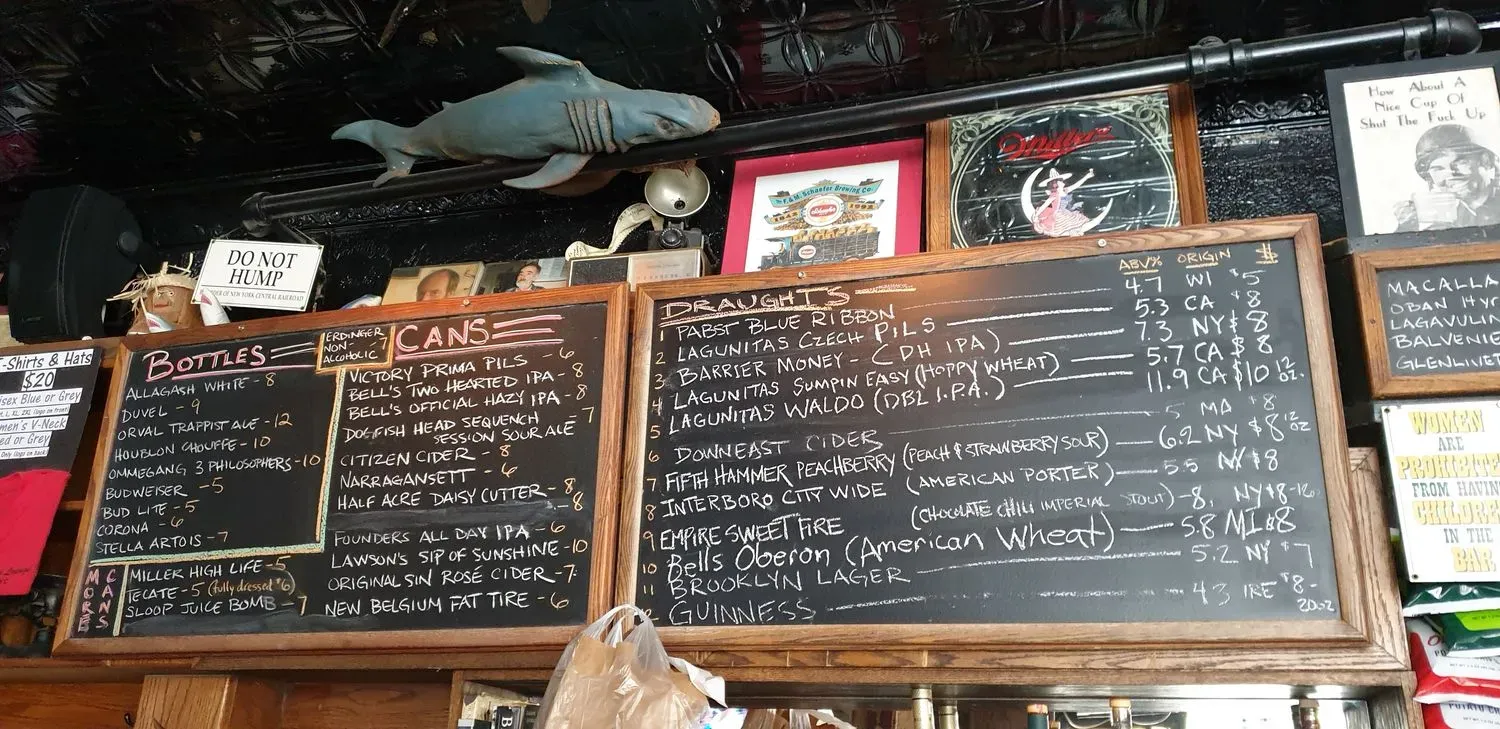 How About A
Nice Cup Of
Shut The Fuck Up
Miller
The F. & M. Schaefer Brewing Co.
1842 1992
Schaefer
DO NOT
HUMP
ORDER OF NEW YORK CENTRAL RAILROAD
T-Shirts & Hats
$20
isex Blue or Grey
L, XL, 2XL (logo on front)
men's V-Neck
ed or Grey
Only (logo on back)
BOTTLES
ALLAGASH WHITE - 8
DUVEL - 9
ORVAL TRAPPIST ALE - 12
HOUBLON CHOUFFE - 10
OMMEGANG 3 PHILOSOPHERS - 10
BUDWEISER - 5
BUD LITE - 5
CORONA - 6
STELLA ARTOIS - 7
ERDINGER
NON- 7
ALCOHOLIC
CANS
VICTORY PRIMA PILS - 6
BELL'S TWO HEARTED IPA - 8
BELL'S OFFICIAL HAZY IPA - 8
DOGFISH HEAD SEQUENCH - 7
SESSION SOUR ALE
CITIZEN CIDER - 8
NARRAGANSETT - 6
HALF ACRE DAISY CUTTER - 8
- 8
FOUNDERS ALL DAY IPA - 6
LAWSON'S SIP OF SUNSHINE - 10
ORIGINAL SIN ROSÉ CIDER - 7
NEW BELGIUM FAT TIRE - 6
MORE CANS
MILLER HIGH LIFE - 5
TECATE - 5 (fully dressed $6)
SLOOP JUICE BOMB - 7
DRAUGHTS ABV% ORIGIN $
1 PABST BLUE RIBBON 4.7 WI $5
2 LAGUNITAS CZECH PILS 5.3 CA $8
3 BARRIER MONEY - (DH IPA) 7.3 NY $8
4 LAGUNITAS SUMPIN EASY (HOPPY WHEAT) 5.7 CA $8
5 LAGUNITAS WALDO (DBL I.P.A.) 11.9 CA $10 12 oz.
6 DOWNEAST CIDER 5 MA $8
7 FIFTH HAMMER PEACHBERRY (PEACH & STRAWBERRY SOUR) 6.2 NY $8 12 oz
8 INTERBORO CITY WIDE (AMERICAN PORTER) 5.5 NY $8
9 EMPIRE SWEET FIRE (CHOCOLATE CHILI IMPERIAL STOUT) - 8. NY $8
10 Bells Oberon (American Wheat) 5.8 MI $8
11 BROOKLYN LAGER 5.2 NY $7
GUINNESS 4.3 IRE $8-
20oz
MACALLA
OBAN 14 YR
LAGAVULIN
BALVENIE
GLENLIVET
WOMEN
ARE
PROHIBITE
FROM HAVIN
CHILDREN
IN THE
BAR